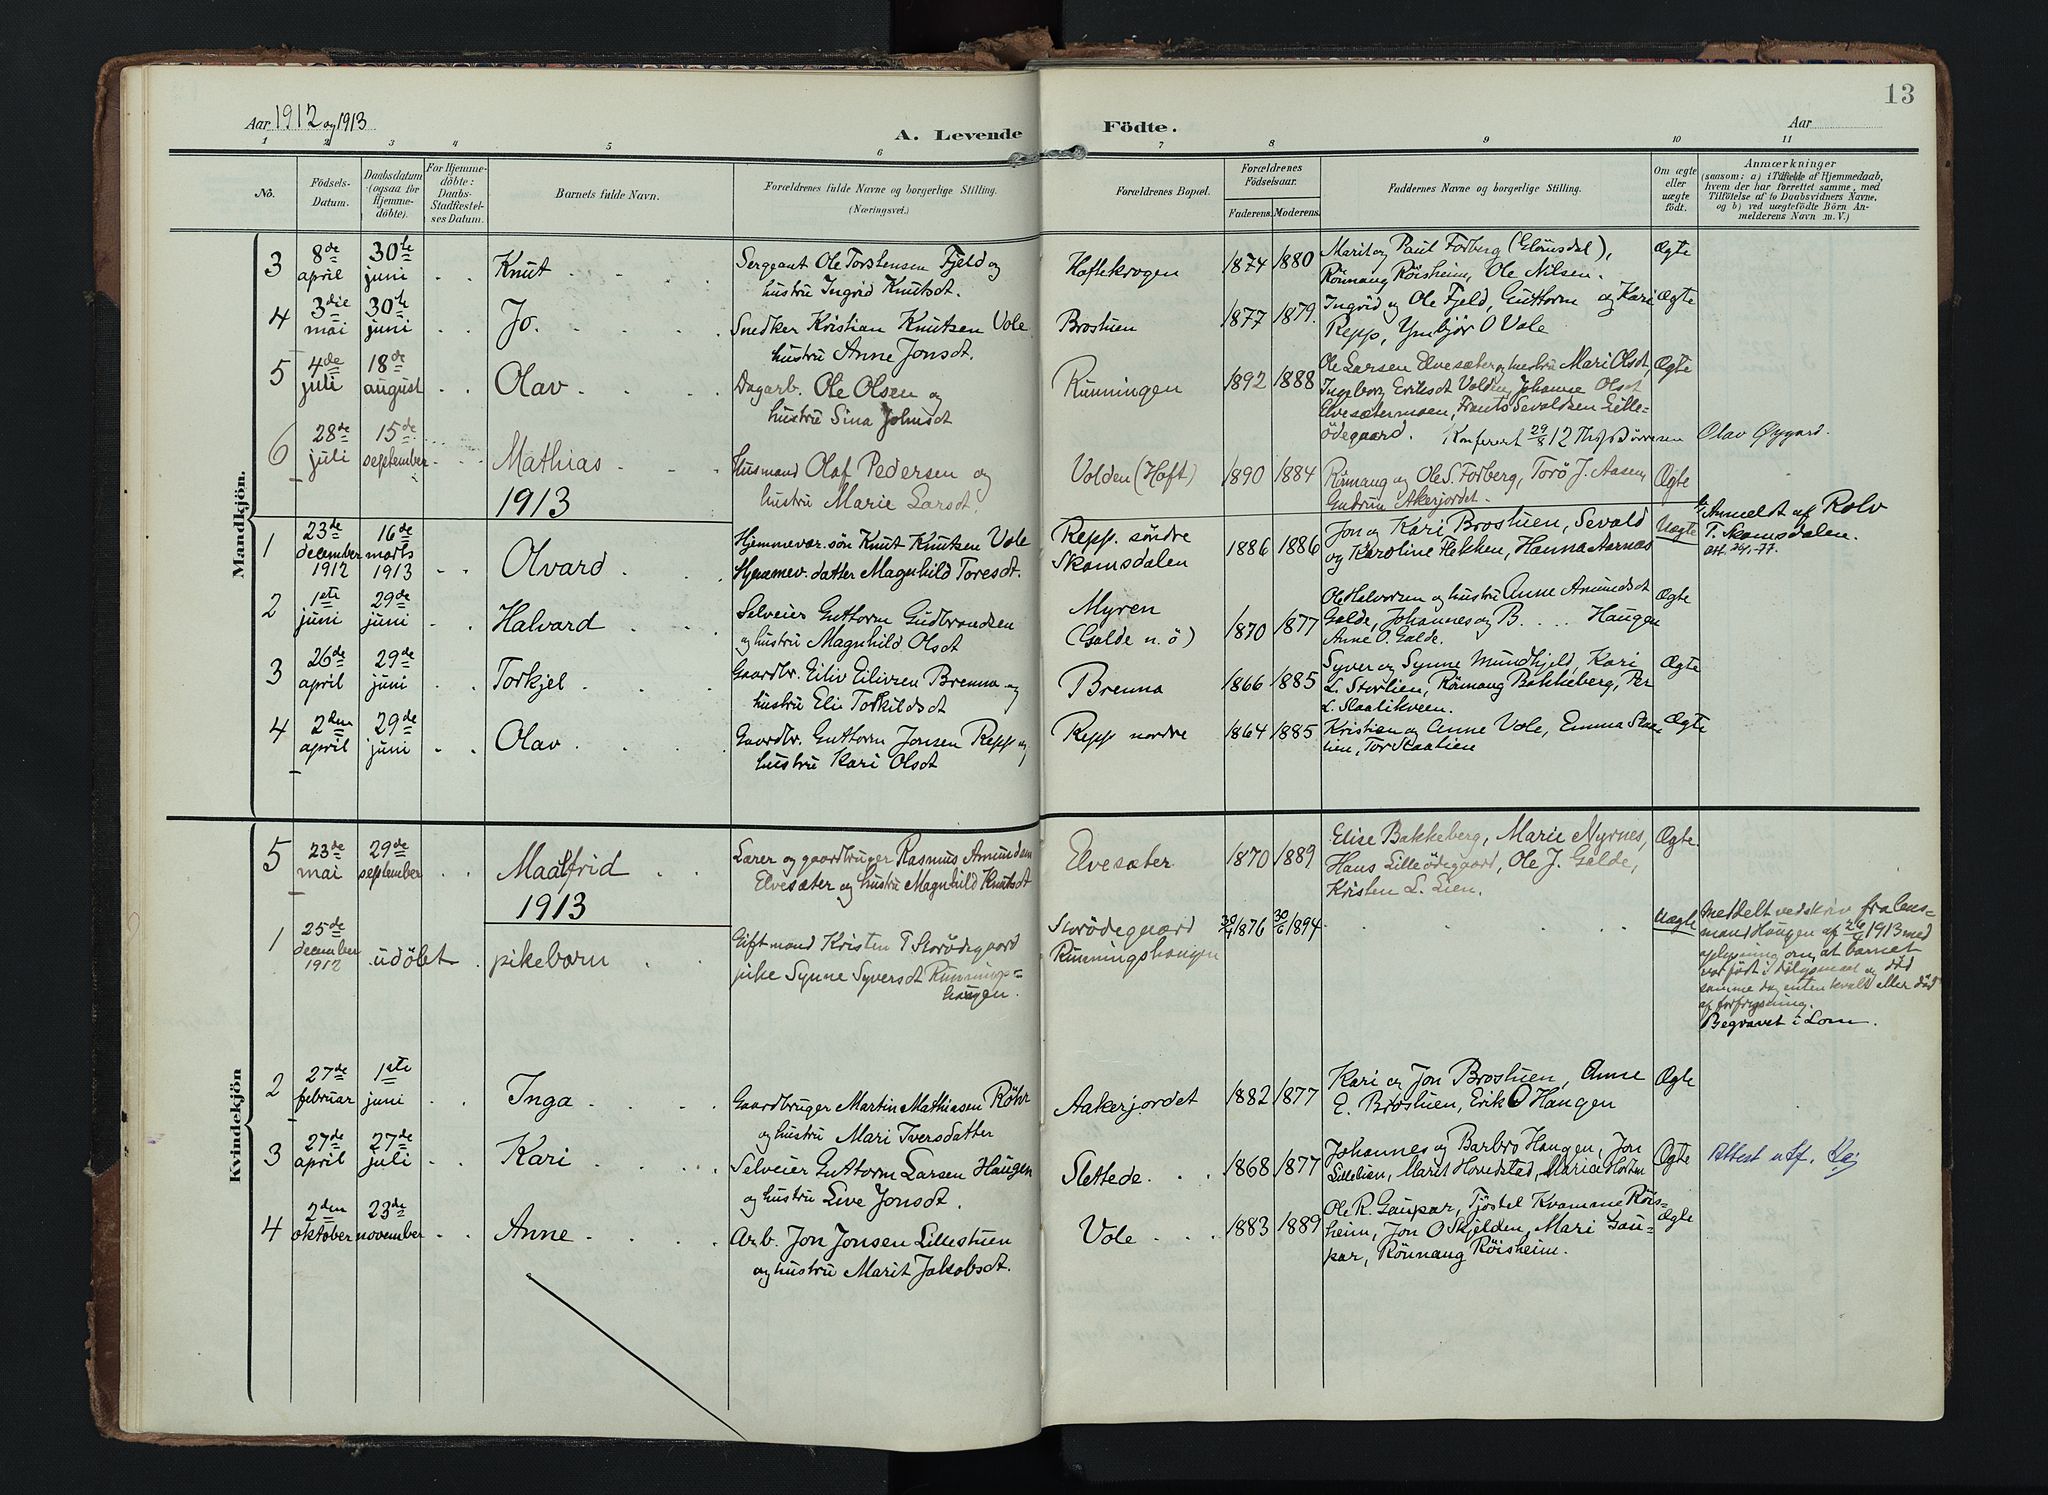 Aar 1912 og 1913
A. Levende Födte.
13
Aar
1 2 3 4 5 6 7 8 9 10 11
No.
Födsels-Datum.
Daabsdatum (ogsaa for Hjemme-döbte).
For Hjemme-döbte: Daabs-Stadfæstel-ses Datum.
Barnets fulde Navn.
Forældrenes fulde Navne og borgerlige Stilling.
(Næringsvei.)
Forældrenes Bopæl.
Forældrenes Födselsaar.
Faderens. Moderens.
Faddernes Navne og borgerlige Stilling.
Om ægte eller uægte födt.
Anmærkninger
(saasom: a) i Tilfælde af Hjemmedaab,
hvem der har forrettet samme, med
Tilföielse af to Daabsvidners Navne,
og b) ved uægtefödte Börn An-
melderens Navn m. V.)
Mandkjön.
3 8de april 30te juni Knut Sergeant Ole Torstensen Fjeld og
hustru Ingrid Knutsdt. Haftekrogen 1874 1880 Marit og Paul Forberg (Glömsdal),
Rönnaug Röisheim, Ole Nilsen. Ægte
4 3die mai 30te juni Jo. Snedker Kristian Knutsen Vole
hustru Anne Jonsdt. Brostuen 1877 1879. Ingrid og Ole Fjeld, Guttorm og Kari
Repp, Ymbjör O Vole Ægte
5 4de juli 18de august Olav Dagarb. Ole Olsen og
hustru Sina Johnsdt Runningen 1892 1888 Ole Larsen Elvesæter og hustru Mari Olsdt,
Ingeborg Eriksdt Volden, Johanne Olsdt
Elvesætermoen, Frants Sevaldsen Lille-
ödegaard. Konferert 29/8 12 Ths Börresen Ægte
Olav Øygard.
6 28de juli 15de september Mathias Husmand Olaf Pedersen og
hustru Marie Larsdt. Volden (Haft) 1890 1884 Rönnaug og Ole S. Forberg, Torö J. Aasen,
Gudrun Akerjordet. Ægte
1913
1 23de december 1912 16de marts 1913 Olvard Hjemmevær. sön Knut Knutsen Vole
Hjemmev. datter Magnhild Toresdt. Repp. söndre
Skamsdalen 1886 1886 Jon og Kari Brostuen, Sevald
og Karoline Flekken, Hanna Aarnæs Uægte
Anmeldt af Rolv
T. Skamsdalen.
2 1ste juni 29de juni Halvard Selveier Guttorm Gudbrandsen
og hustru Magnhild Olsdt Myren
(Galde n. ö) 1870 1877 Ole Halvorsen og hustru Anne Amundsdt
Galde, Johannes og B.... Haugen
Anne O Galde. Ægte
3 26de april 29de juni Torkjel Gaardbr. Eiliv Eilivsen Brenna og
hustru Eli Torkildsdt Brenna 1866 1885 Syver og Synne Mundhjeld, Kari
L. Storlien, Rönnaug Bakkeberg, Per
L. Slaalikveen. Ægte
4 2den april 29de juni Olav Gaardbr. Guttorm Jonsen Repp og
hustru Kari Olsdt Repp nordre 1864 1885 Kristian og Anne Vole, Emma Slaa-
lien, Tor Slaalien Ægte
Kvindekjön
5 23de mai 29de september Maalfrid Lærer og gaardbruger Rasmus Amundsen
Elvesæter og hustru Magnhild Knutsdt Elvesæter 1870 1889 Elise Bakkeberg, Marie Myrnes,
Hans Lilleödegaard, Ole J. Galde,
Kristen L. Lien. Ægte.
1913
1 25de december 1912 udöbt pikebarn Gift mand Kristen T Storödegaard
pike Synne Syversdt Runnings-
haugen. Storödegaard
Runningshaugen 1876 1894 Uægte
Meldt ved skriv fra lens-
mand Haugen af 26/6 1913 med
oplysning om, at barnet
var födt i dölgsmaal og död
samme dag enten kvalt eller död
af forfrysning.
Begravet i Lom.
2 27de februar 1ste juni Inga Gaardbruger Martin Mathiasen Röhr
og hustru Mari Iversdatter Aakerjordet 1882 1877 Kari og Jon Brostuen, Anne
E. Brostuen, Erik O Haugen Ægte
3 27de april 27de juli Kari Selveier Guttorm Larsen Haugen
og hustru Live Jonsdt. Slettede 1868 1877 Johannes og Barbro Haugen, Jon
Lillelien, Marit Hovdstad, Maria Horten Ægte
Attest utf.
4 2den oktober 23de november Anne Arb. Jon Jonsen Lillestuen
og hustru Marit Jakobsdt. Vole 1883 1889 Ole R. Gaupar, Tjöstel Kvamme Röis-
heim, Jon O Skjelden, Mari Gau-
par, Rönnaug Röisheim. Ægte